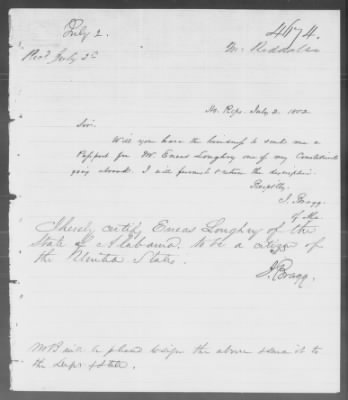 July 2.
4674.
Recd July 2d
Mr. Riddoles
Ho. Reps. July 2. 1852
Sir.
Will you have the kindness to send me a
Passport for Mr Eneas Loughry one of my Constituents
going abroad. I will furnish & return the description.
Respctly.
J. Bragg.
of Ala.
I hereby certify Eneas Loughry of the
State of Alabama, to be a citizen of
the United States.
J. Bragg.
Mr B will be pleased to sign the above & send it to
the Dept of State.